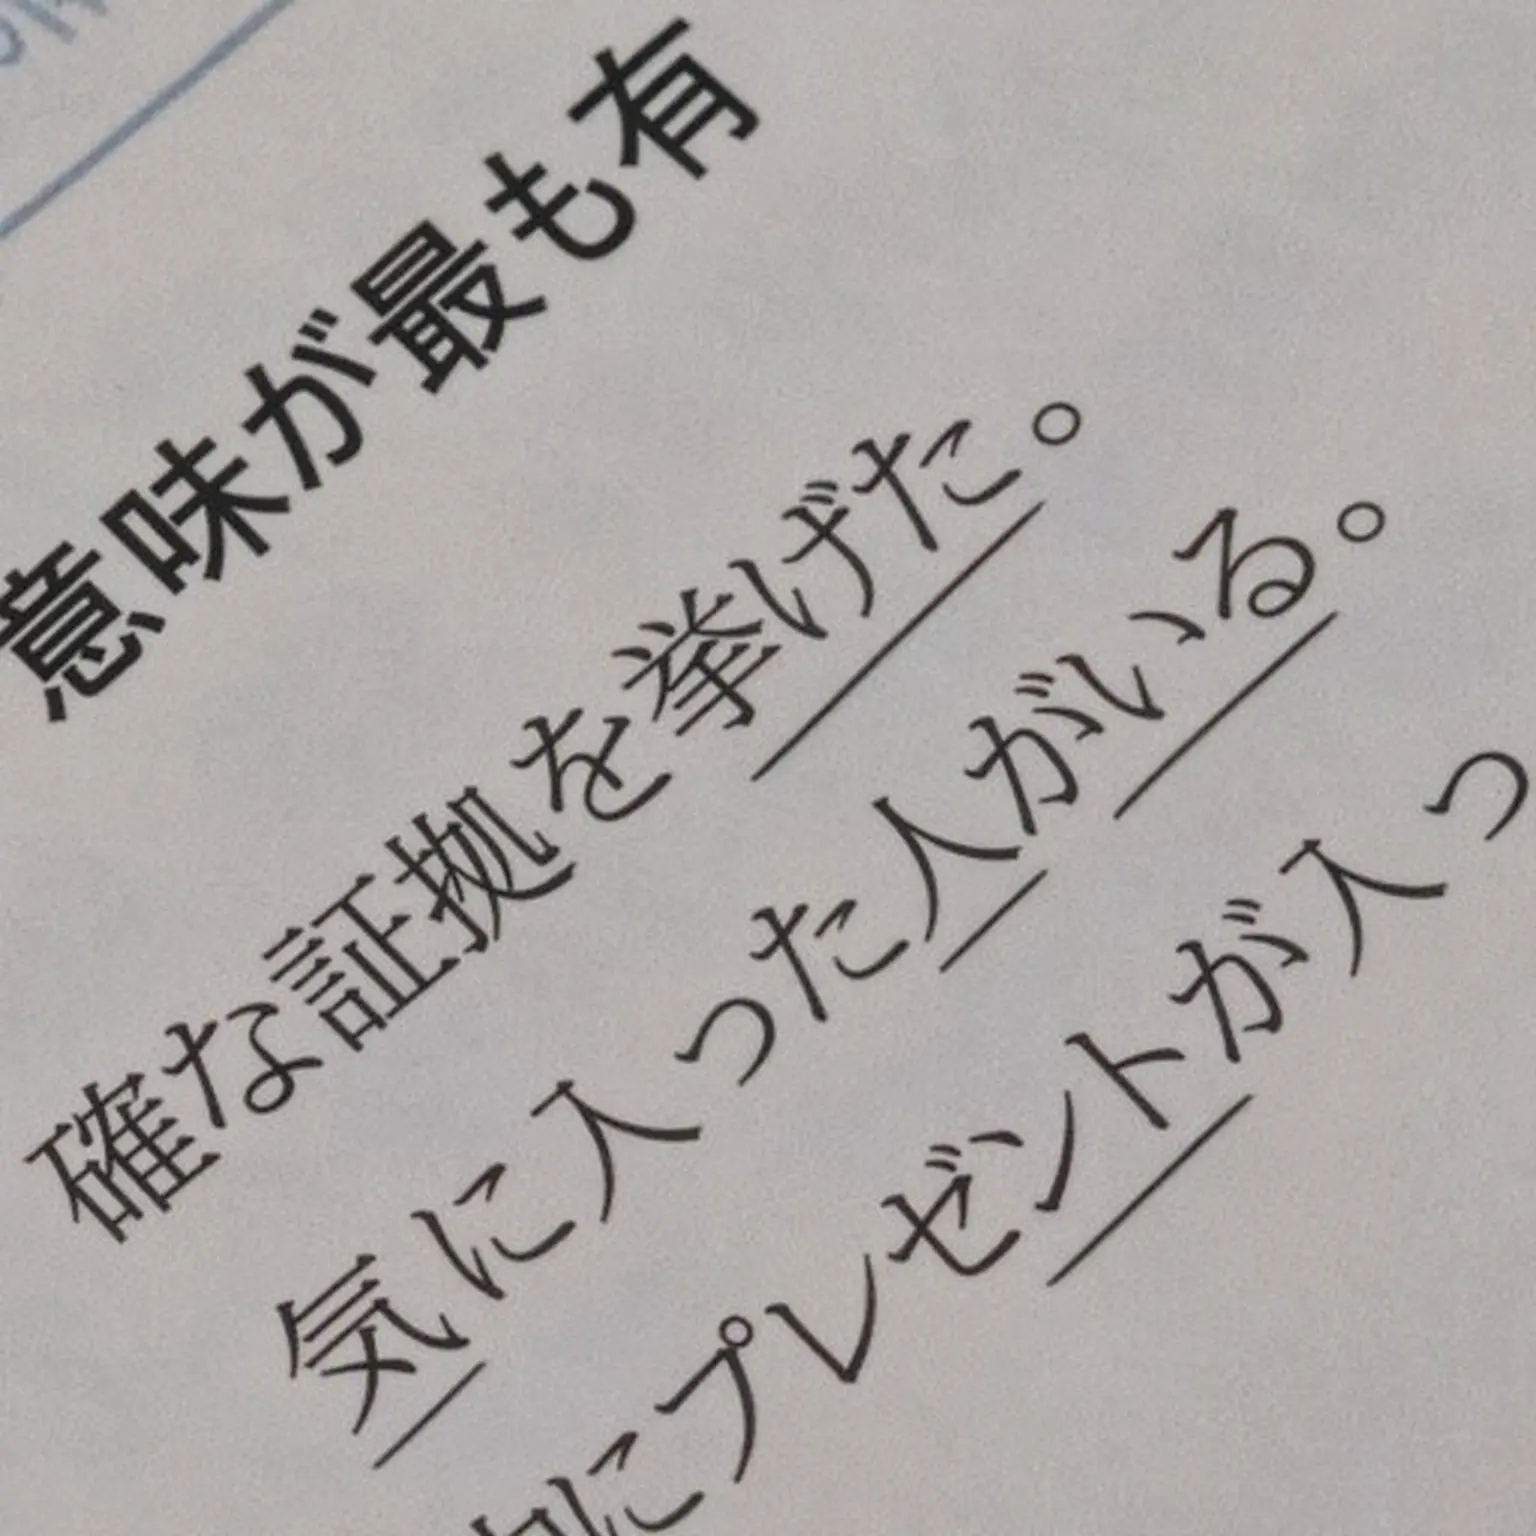 意味が最も有
確な証拠を挙げた。
気に入った人がいる。
にプレゼントが入っ